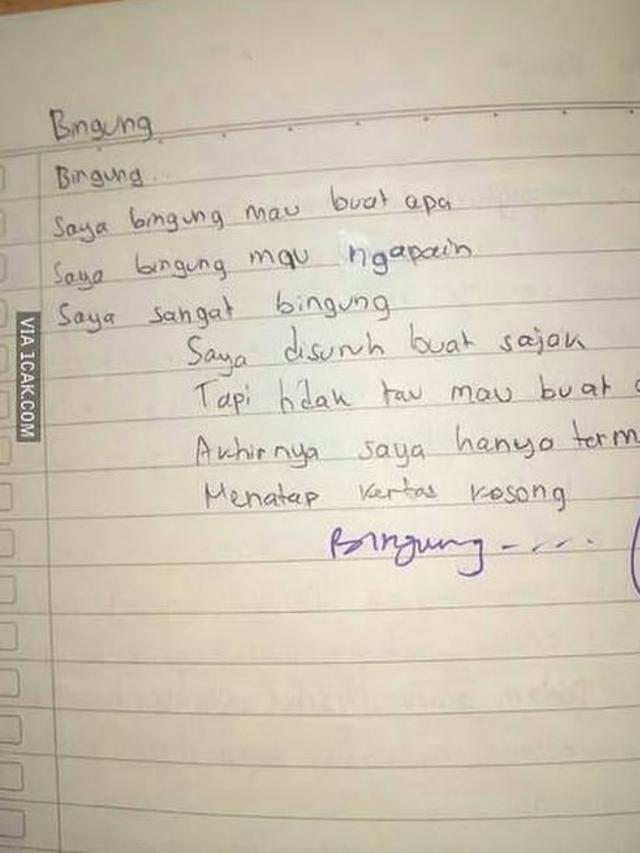 Bingung
Bingung...
Saya bingung mau buat apa
Saya bingung mau ngapain
Saya sangat bingung
Saya disuruh buat sajak
Tapi tidak tau mau buat a
Akhirnya saya hanya term
Menatap kertas kosong
Bingung - ....
VIA 1CAK.COM